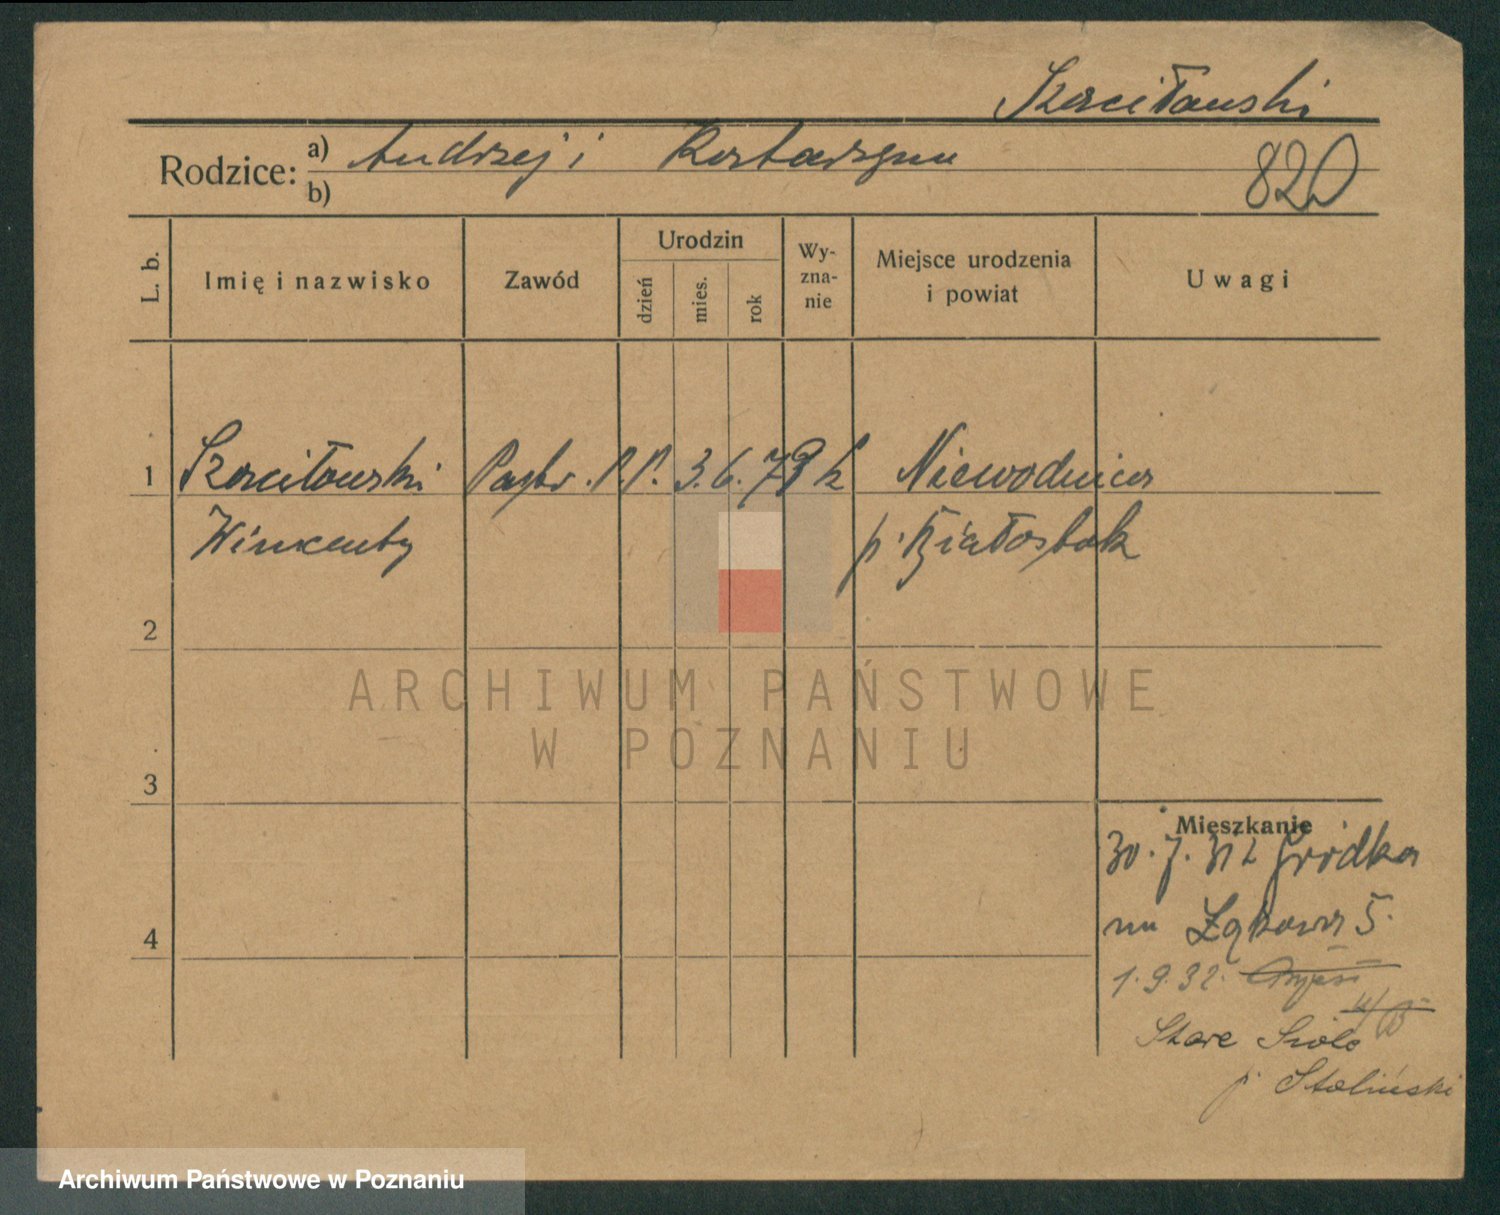 Szaciłowski
Rodzice: a) Andrzej i Katarzyna
b)
820
L. b.
Imię i nazwisko
Zawód
Urodzin
dzień
mies.
rok
Wy-
zna-
nie
Miejsce urodzenia
i powiat
Uwagi
1 Szaciłowski P.P. 3. 6. 79 k Niewodnica
Wincenty p. Białostok
2
3
4
Mieszkanie
30. 7. 31 z Gródka
na Łąkowa 5.
1. 9. 32.
Stare Sioło
p. Stoliński
ARCHIWUM PAŃSTWOWE
W POZNANIU
Archiwum Państwowe w Poznaniu